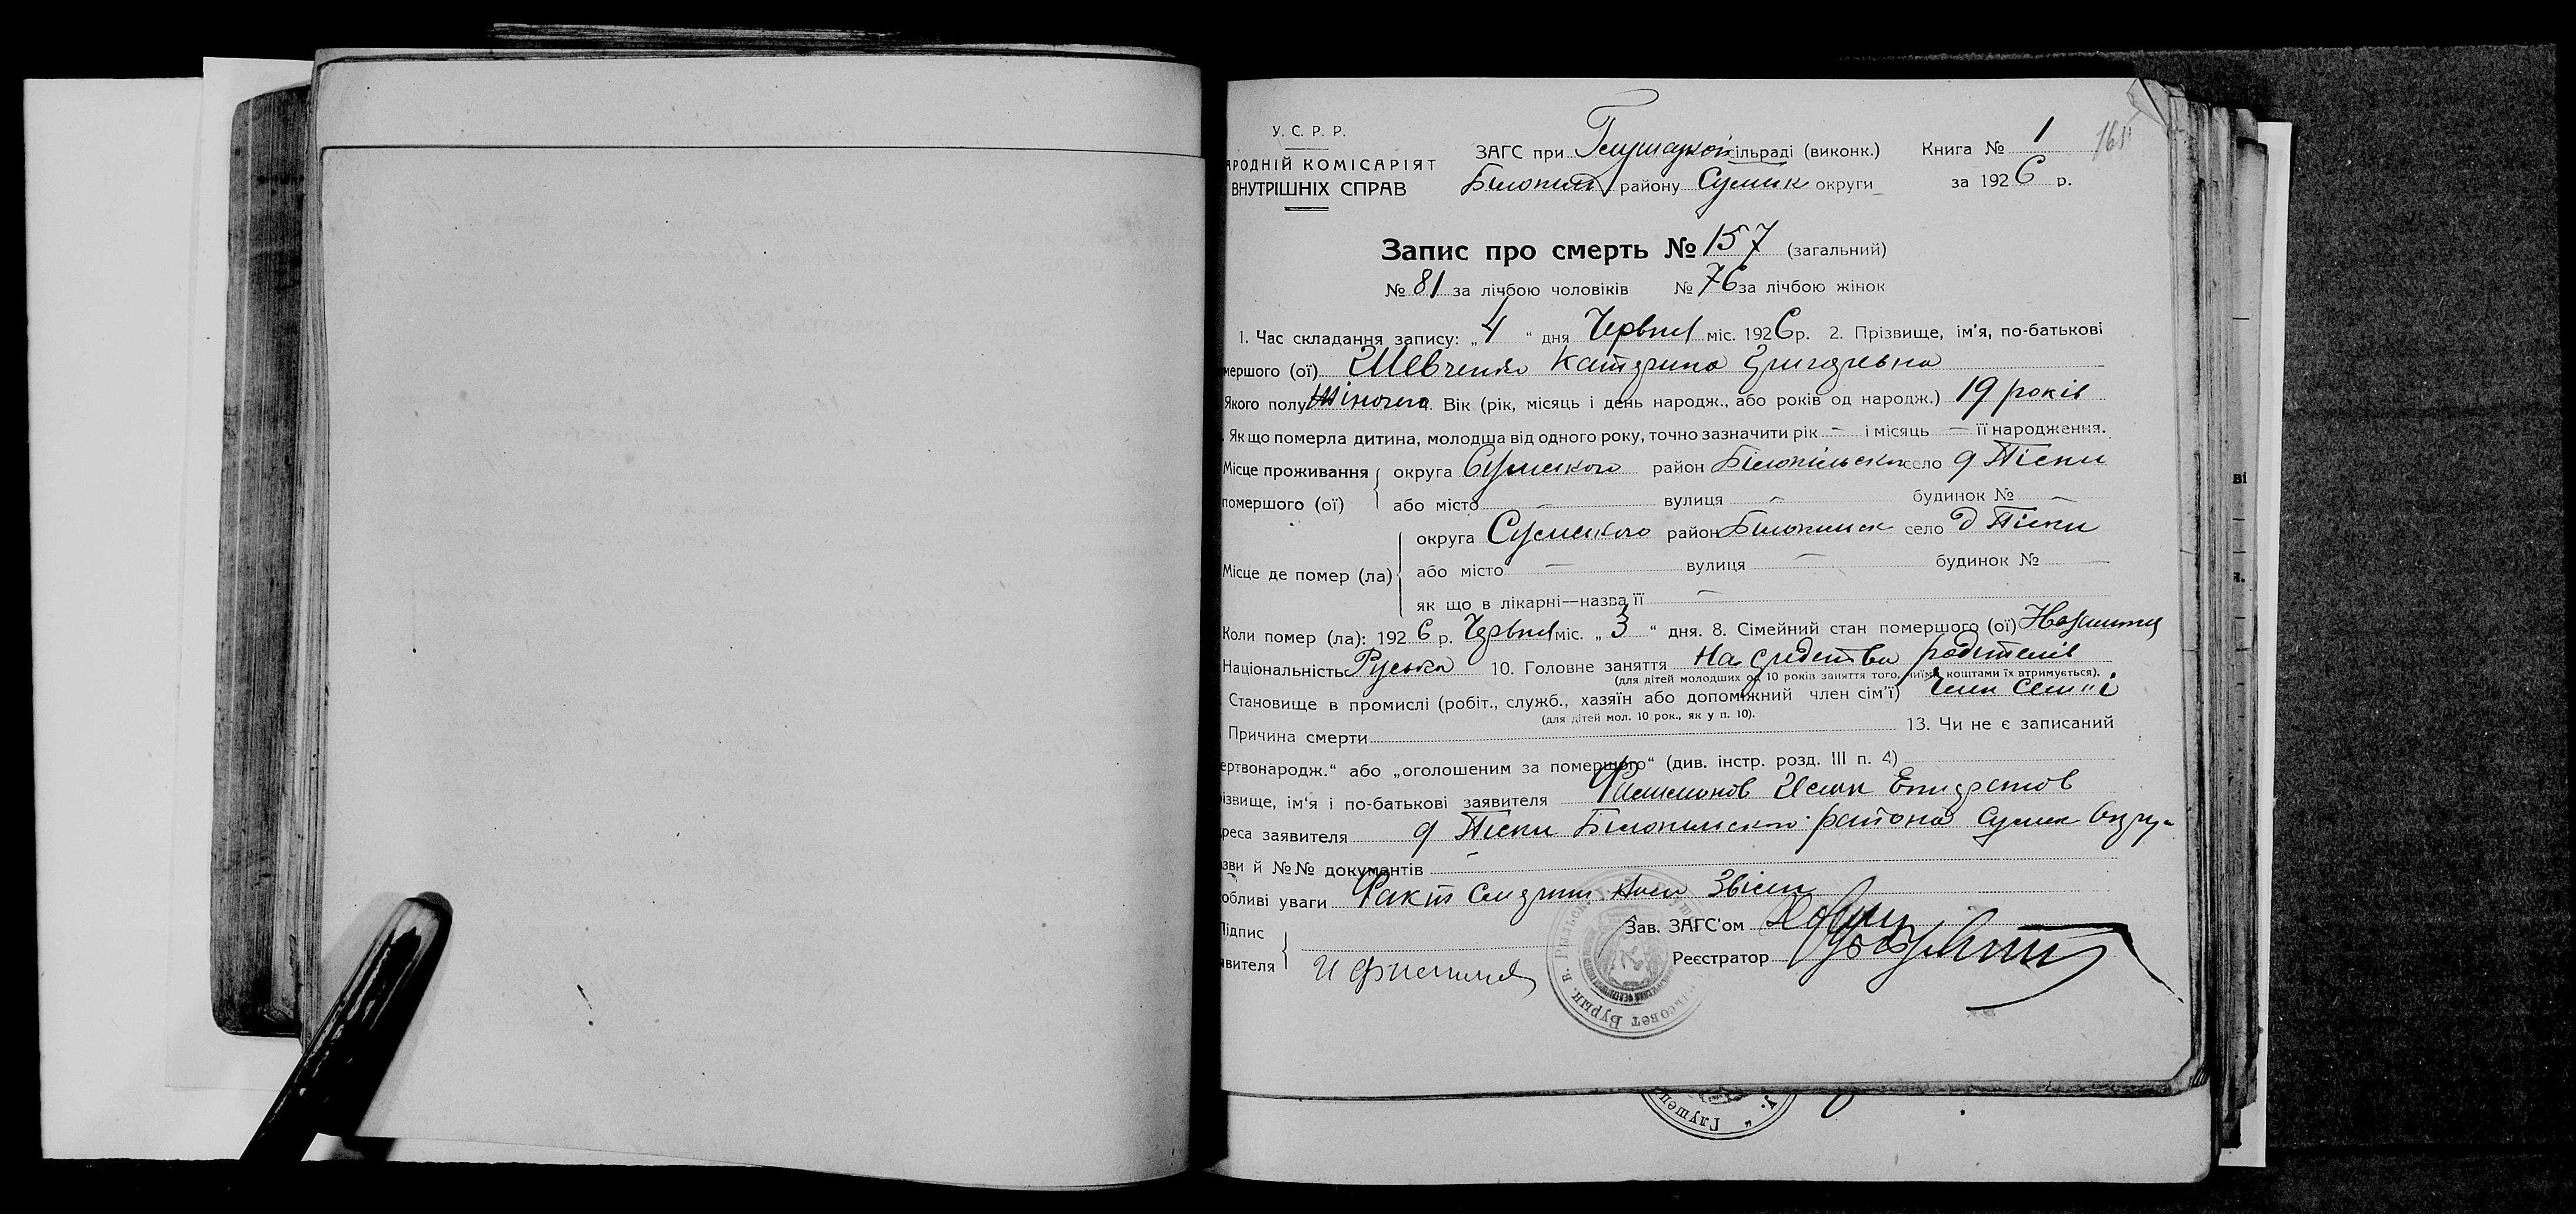 У. С. Р. Р.
АРОДНІЙ КОМІСАРІЯТ
ВНУТРІШНІХ СПРАВ
ЗАГС при Глушецкой сільраді (виконк.) Книга № 1
району Сумск округи за 1926 р.
Запис про смерть № 157 (загальний)
№ 81 за лічбою чоловіків № 76 за лічбою жінок
1. Час складання запису: „ 4 “ дня Червня міс. 1926 р. 2. Прізвище, ім'я, по-батькові
мершого (ої) Шевченко Катерина Григоревна
Якого полу жіночого. Вік (рік, місяць і день народж., або років од народж.) 19 років
. Як що померла дитина, молодша від одного року, точно зазначити рік — і місяць — її народження.
Місце проживання округа Сумского район Білопільск село д Піски
помершого (ої) або місто — вулиця — будинок № —
округа Сумского район Білопільск село д Піски
Місце де помер (ла) або місто — вулиця — будинок № —
як що в лікарні—назва її —
Коли помер (ла): 1926 р. Червня міс. „ 3 “ дня. 8. Сімейний стан помершого (ої)
Національність Руська 10. Головне заняття На средства родителів
(для дітей молодших од 10 років заняття того, чиїми коштами їх втримується).
Становище в промислі (робіт., служб., хазяїн або допоміжний член сім'ї) Член семії
(для дітей мол. 10 рок., як у п. 10).
Причина смерти 13. Чи не є записаний
ертвонародж.“ або „оголошеним за помершого“ (див. інстр. розд. III п. 4)
ізвище, ім'я і по-батькові заявителя Филимонов
реса заявителя д Піски района Сумск Окру-
зви й №№ документів —
обливі уваги Факт смерти
Підпис
явителя
Зав. ЗАГС'ом
Реєстратор
Глушец